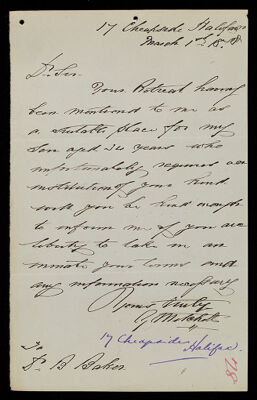 17 Cheapside Halifax
March 1st 18
Dr Sir
Your Retreat having
been mentioned to me as
a suitable place for my
Son aged 24 years who
unfortunately requires an
institution of your kind
will you be kind enough
to inform me if you are
liberty to take in an
inmate your terms and
any information necessary
Yours truly
G. Mitchell
17 Cheapside
Halifax
To
Dr B Baker